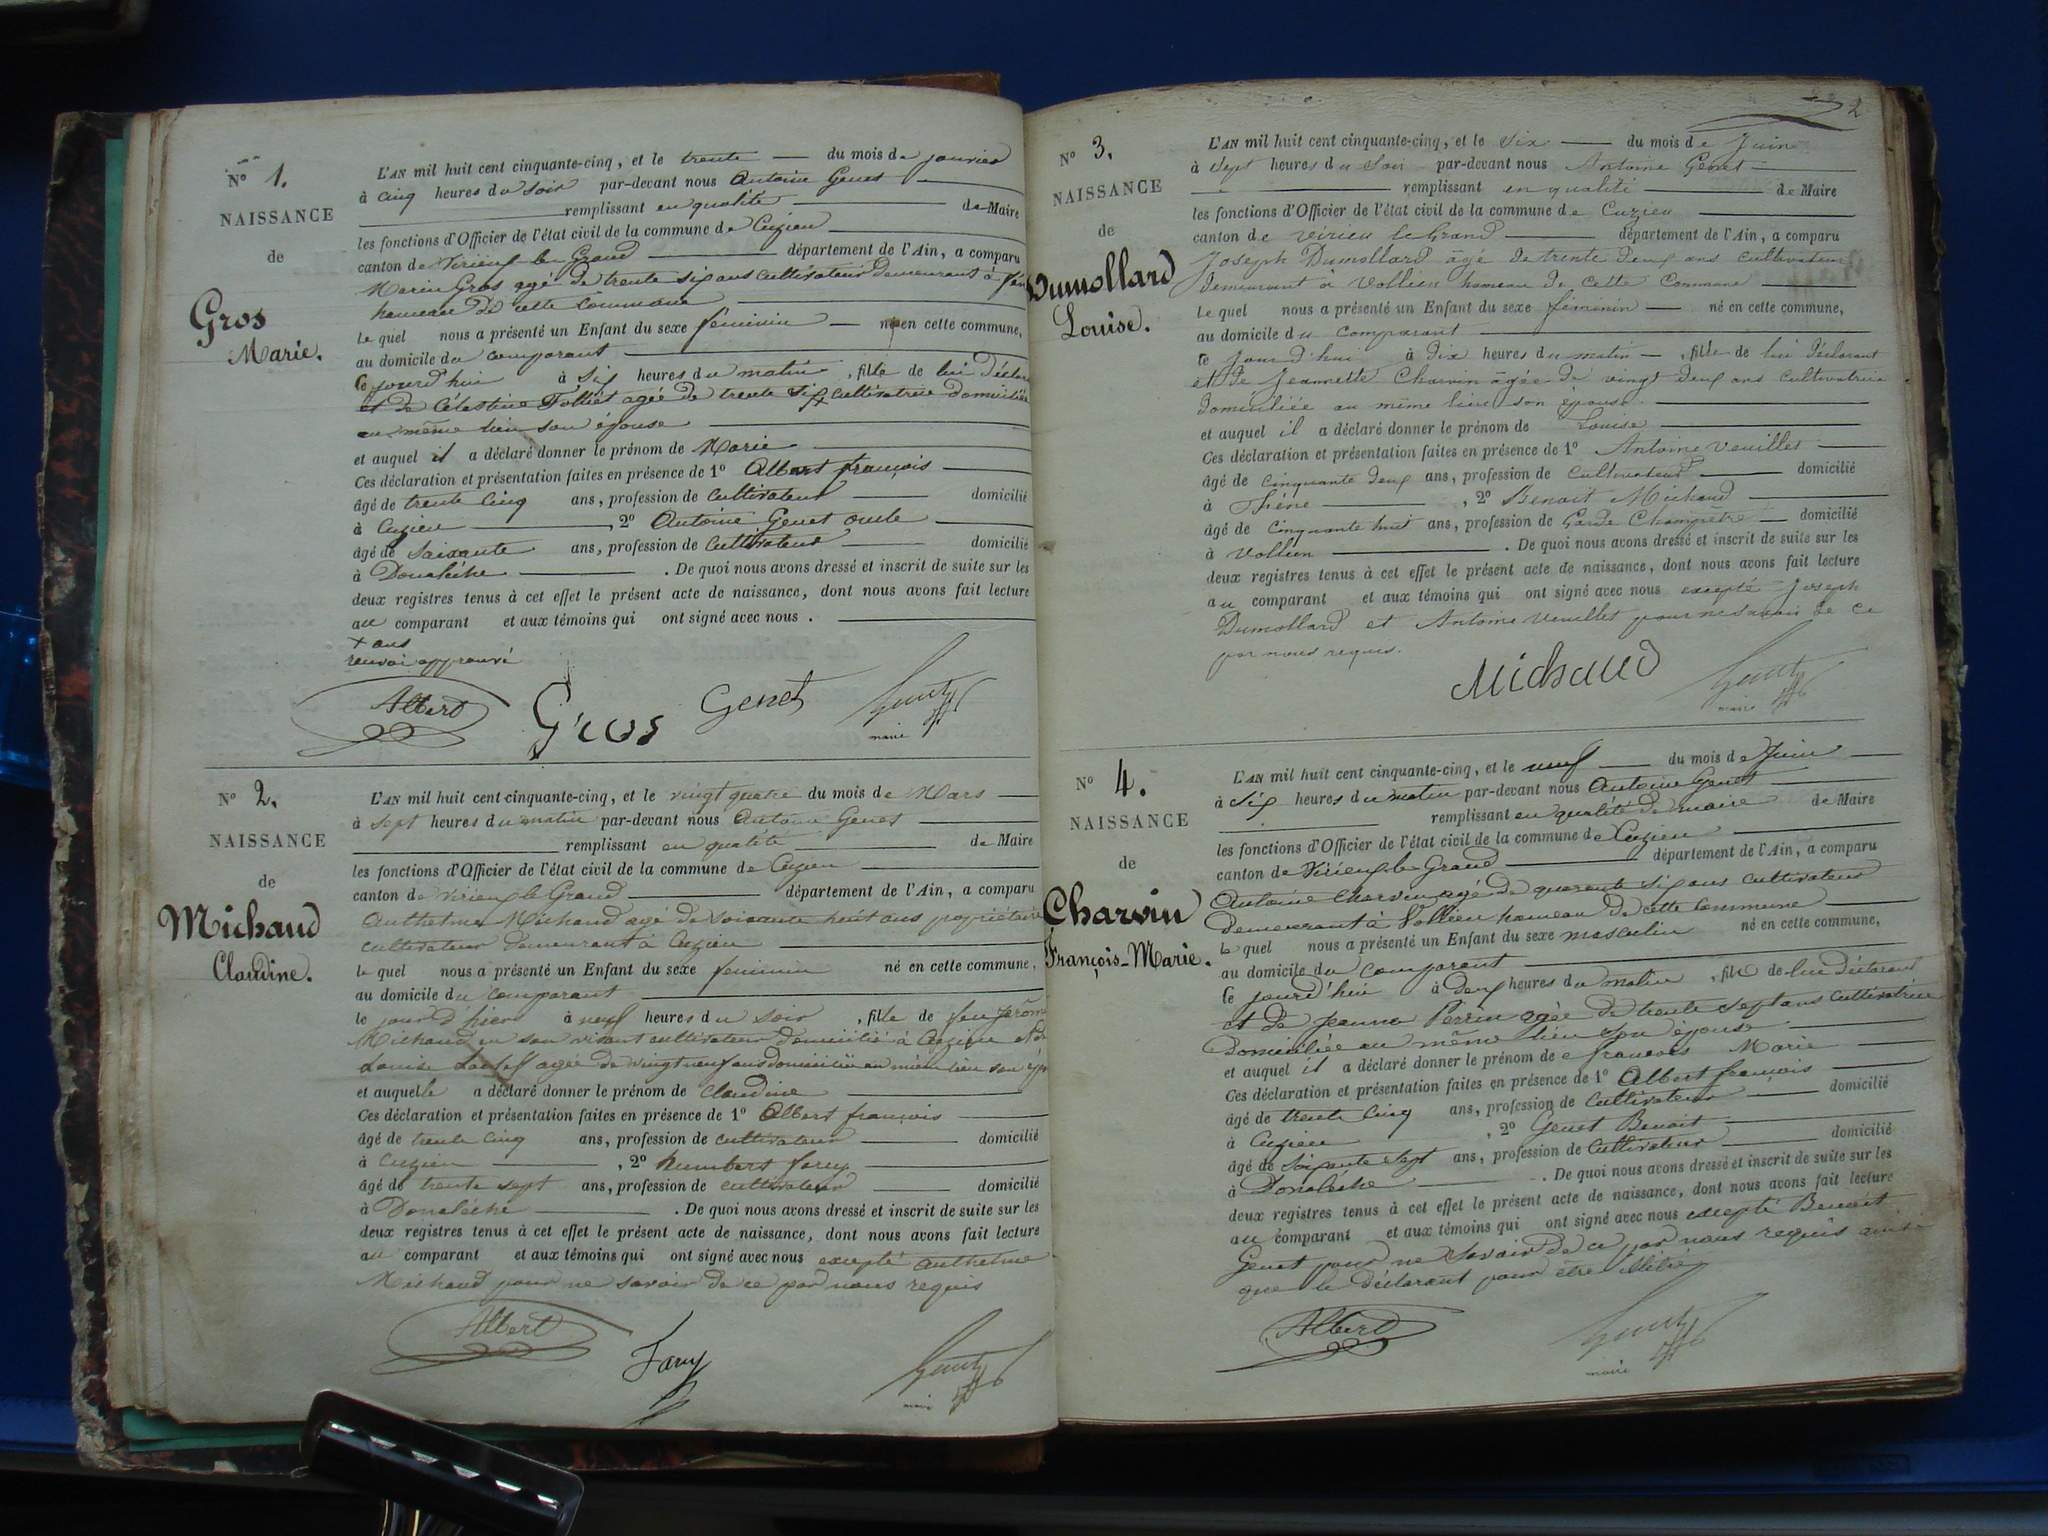 N° 1.
NAISSANCE
de
Gros
Marie.
L'AN mil huit cent cinquante-cinq, et le trente du mois de janvier
à cinq heures du soir par-devant nous Antoine Genet
remplissant en qualité de Maire
les fonctions d'Officier de l'état civil de la commune de Cuzieu
canton de Virieux le Grand département de l'Ain, a comparu
Marin Gros agé de trente six ans cultivateur demeurant à
hameau de cette commune
le quel nous a présenté un Enfant du sexe féminin né en cette commune,
au domicile du comparant
ce jourd'hui à six heures du matin, fille de lui déclarant
et de Célestine Folliet agée de trente six + cultivatrice domiciliée
au même lieu son épouse
et auquel il a déclaré donner le prénom de Marie
Ces déclaration et présentation faites en présence de 1° Albert françois
âgé de trente cinq ans, profession de cultivateur domicilié
à Cuzieu, 2° Antoine Genet oncle
âgé de soixante ans, profession de cultivateur domicilié
à Donalèche. De quoi nous avons dressé et inscrit de suite sur les
deux registres tenus à cet effet le présent acte de naissance, dont nous avons fait lecture
au comparant et aux témoins qui ont signé avec nous.
+ ans
renvoi approuvé
Albert Gros Genet Genet
maire
N° 2.
NAISSANCE
de
Michaud
Claudine.
L'AN mil huit cent cinquante-cinq, et le vingt quatre du mois de Mars
à sept heures du matin par-devant nous Antoine Genet
remplissant en qualité de Maire
les fonctions d'Officier de l'état civil de la commune de Cuzieu
canton de Virieux le Grand département de l'Ain, a comparu
Anthelme Michaud agé de soixante huit ans propriétaire
cultivateur demeurant à Cuzieu
le quel nous a présenté un Enfant du sexe feminin né en cette commune,
au domicile du comparant
le jour d'hier à neuf heures du soir, fille de feu Jérôme
Michaud en son vivant cultivateur domicilié à Cuzieu et de
Louise agée de vingt neuf ans domiciliée au même lieu son
et auquel le a déclaré donner le prénom de Claudine
Ces déclaration et présentation faites en présence de 1° Albert françois
âgé de trente cinq ans, profession de cultivateur domicilié
à Cuzieu, 2° humbert favy
âgé de trente sept ans, profession de cultivateur domicilié
à Donalèche. De quoi nous avons dressé et inscrit de suite sur les
deux registres tenus à cet effet le présent acte de naissance, dont nous avons fait lecture
au comparant et aux témoins qui ont signé avec nous excepté anthelme
Michaud pour ne savoir de ce par nous requis
Albert favy Genet
maire
2
N° 3.
NAISSANCE
de
Dumollard
Louise.
L'AN mil huit cent cinquante-cinq, et le six du mois de Juin
à sept heures du soir par-devant nous Antoine Genet
remplissant en qualité de Maire
les fonctions d'Officier de l'état civil de la commune de Cuzieu
canton de Virieu le Grand département de l'Ain, a comparu
Joseph Dumollard âgé de trente deux ans cultivateur
demeurant à Vollien hameau de cette commune
le quel nous a présenté un Enfant du sexe féminin né en cette commune,
au domicile du comparant
ce jourd'hui à dix heures du matin, fille de lui déclarant
et de Jeannette Charvin âgée de vingt deux ans cultivatrice
domiciliée au même lieu son épouse.
et auquel il a déclaré donner le prénom de Louise
Ces déclaration et présentation faites en présence de 1° Antoine Veuillet
âgé de cinquante deux ans, profession de cultivateur domicilié
à Thène, 2° Benoit Michaud
âgé de cinquante huit ans, profession de Garde Champêtre domicilié
à Vollien. De quoi nous avons dressé et inscrit de suite sur les
deux registres tenus à cet effet le présent acte de naissance, dont nous avons fait lecture
au comparant et aux témoins qui ont signé avec nous excepté Joseph
Dumollard et Antoine Veuillet pour ne savoir de ce
par nous requis.
Michaud Genet
maire
N° 4.
NAISSANCE
de
Charvin
François-Marie.
L'AN mil huit cent cinquante-cinq, et le neuf du mois de Juin
à six heures du matin par-devant nous Antoine Genet
remplissant en qualité de maire de Maire
les fonctions d'Officier de l'état civil de la commune de Cuzieu
canton de Virieux le Grand département de l'Ain, a comparu
Antoine Charvin agé de quarante six ans cultivateur
demeurant à Vollien hameau de cette commune
le quel nous a présenté un Enfant du sexe masculin né en cette commune,
au domicile du comparant
ce jourd'hui à deux heures du matin, fils de lui déclarant
et de Jeanne Perrin agée de trente sept ans cultivatrice
domiciliée au même lieu son épouse
et auquel il a déclaré donner le prénom de francois Marie
Ces déclaration et présentation faites en présence de 1° Albert françois
âgé de trente cinq ans, profession de cultivateur domicilié
à Cuzieu, 2° Genet Benoit
âgé de soixante sept ans, profession de cultivateur domicilié
à Donalèche. De quoi nous avons dressé et inscrit de suite sur les
deux registres tenus à cet effet le présent acte de naissance, dont nous avons fait lecture
au comparant et aux témoins qui ont signé avec nous excepté Benoit
Genet pour ne savoir de ce par nous requis ainsi
que le déclarant pour être illitéré
Albert Genet
maire